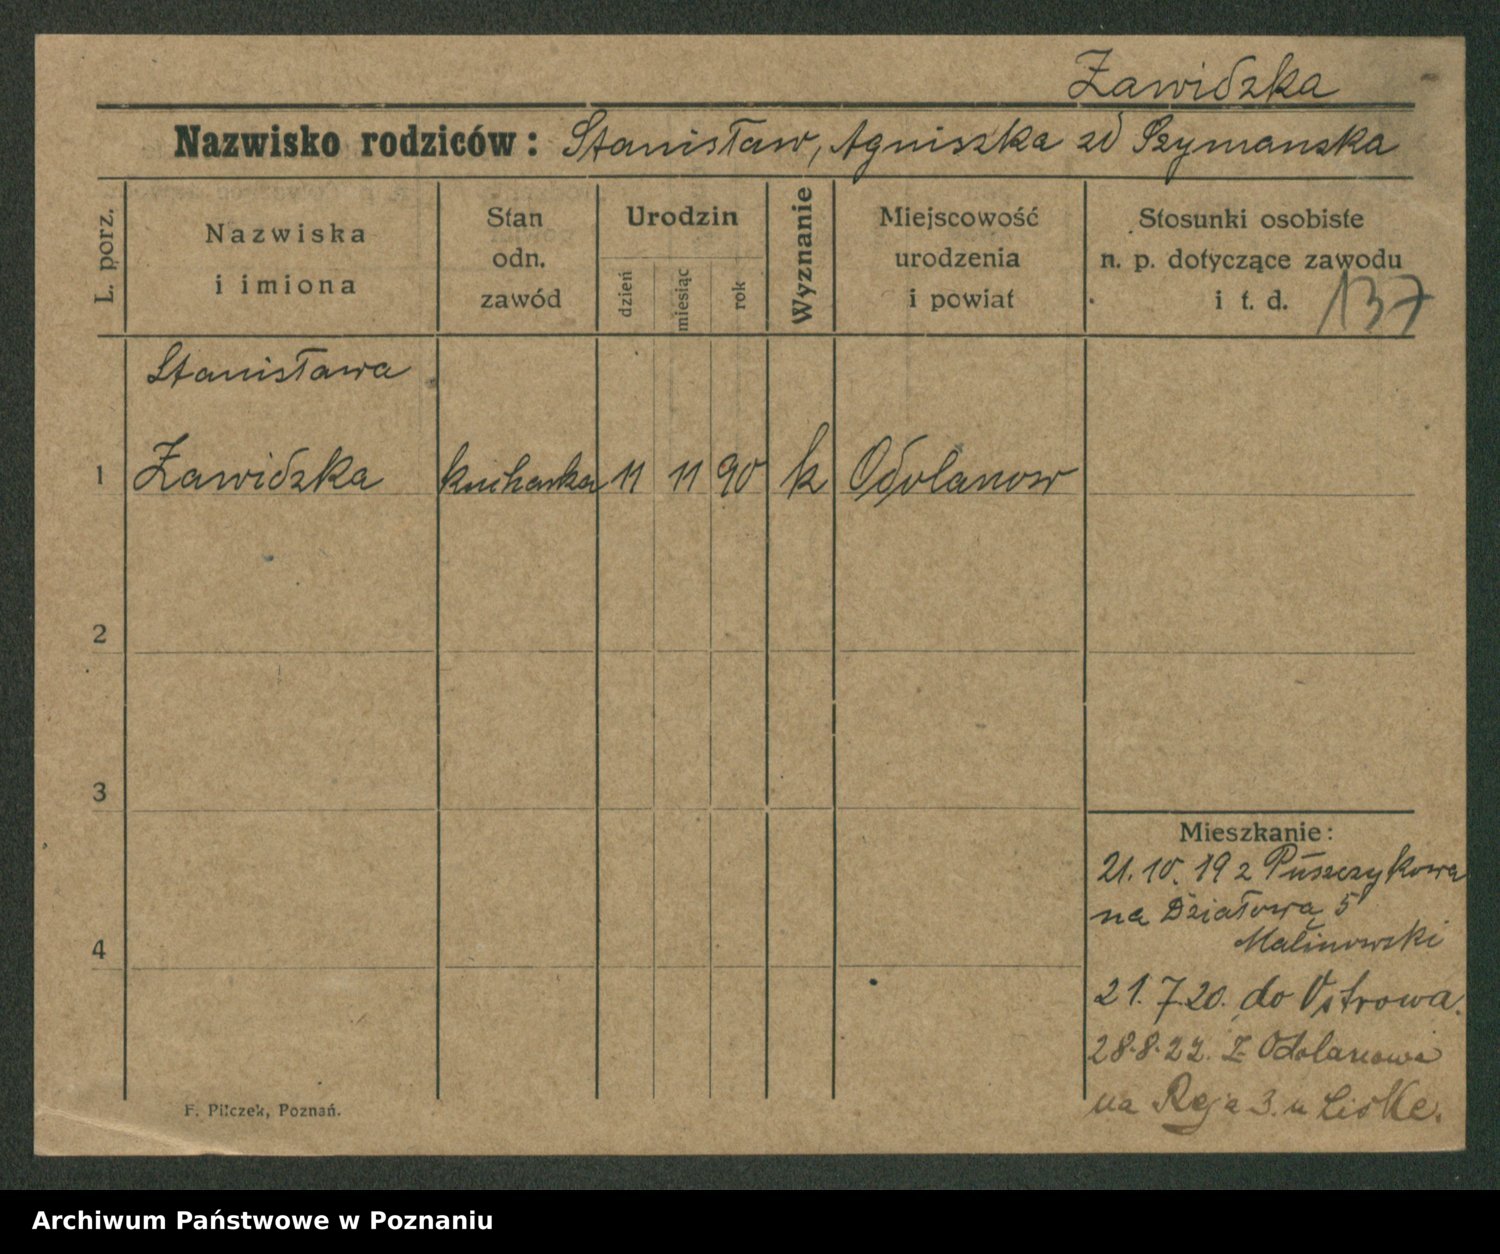 Zawidzka
Nazwisko rodziców: Stanisław, Agniszka zd Szymanska
L. porz.
Nazwiska
i imiona
Stan
odn.
zawód
Urodzin
dzień
miesiąc
rok
Wyznanie
Miejscowość
urodzenia
i powiat
Stosunki osobiste
n. p. dotyczące zawodu
i t. d.
137
Stanisława
1 Zawidzka kucharka 11 11 90 k Odolanow
2
3
4
Mieszkanie:
21.10.19 z Puszczykowa
na Działową 5
Malinowski
21.7.20. do Ostrowa.
28.8.22. z Odolanowa
na Reja 3. u Liske.
F. Pilczek, Poznań.
Archiwum Państwowe w Poznaniu